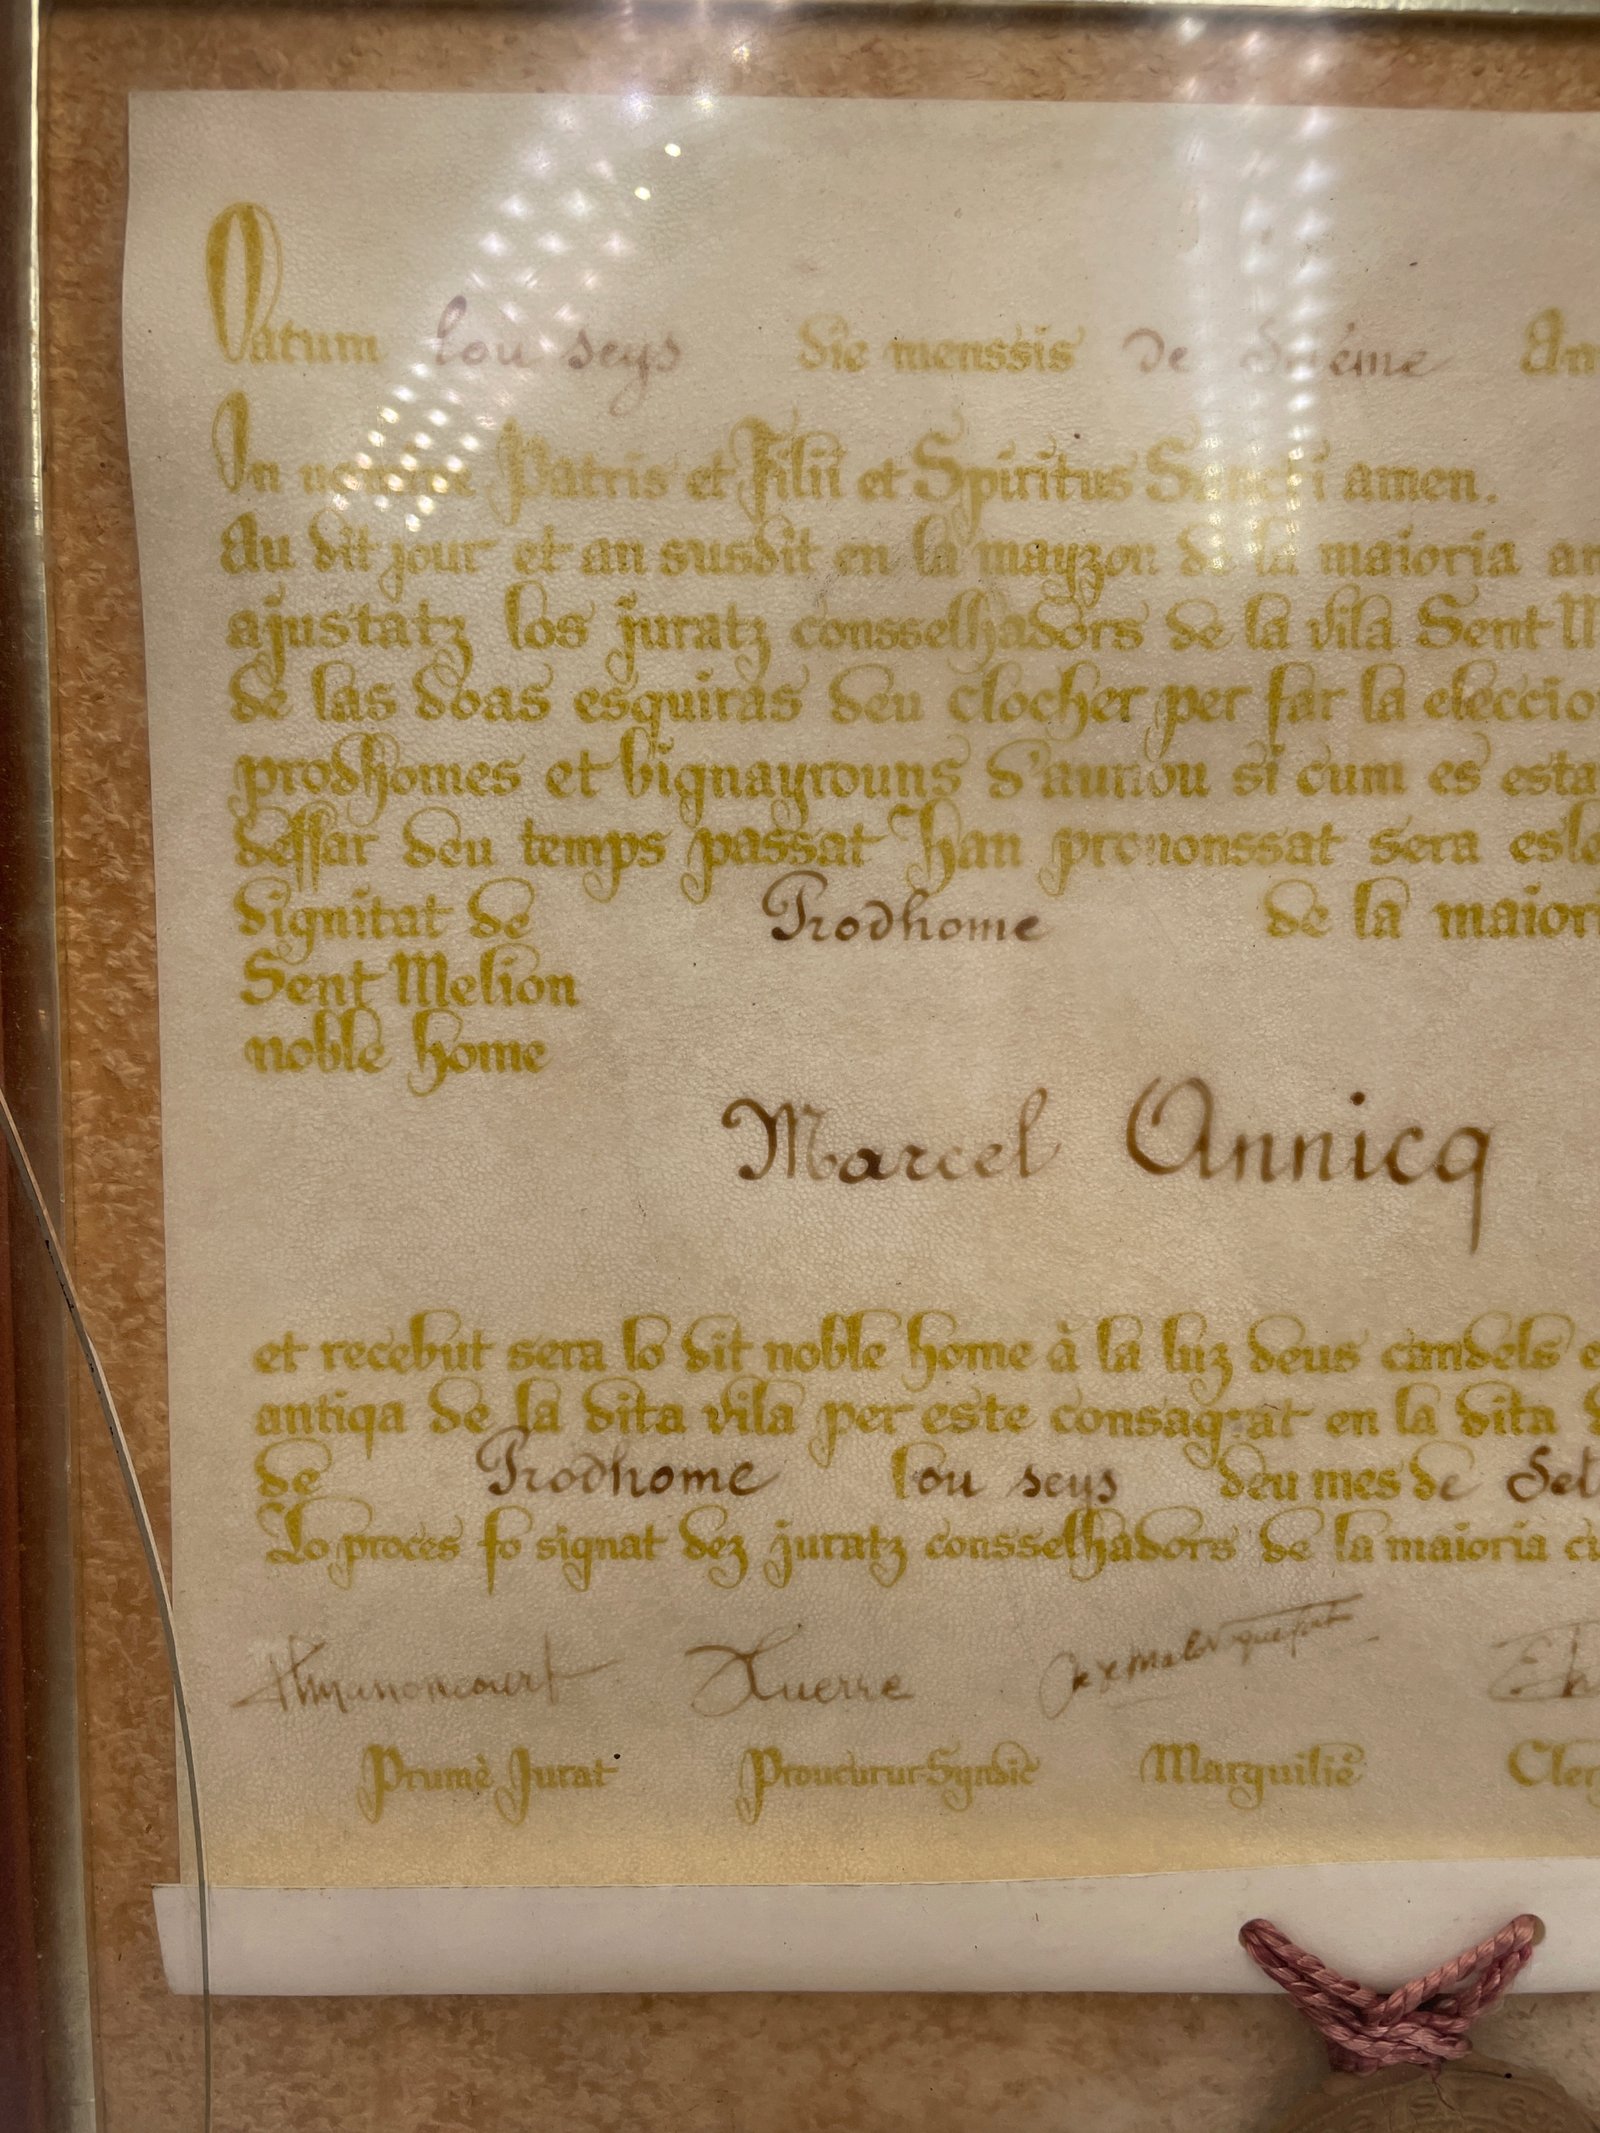 Datum lou seys die menssis de An
In nomine Patris et Filii et Spiritus Sancti amen.
Au dit jour et an susdit en la mayzon de la maioria an
ajustatz los juratz consselhadors de la vila Sent M
de las doas esquiras deu clocher per far la eleccio
prodhomes et bignayrouns d'aunou si cum es esta
deffar deu temps passat han prononssat sera esle
dignitat de Prodhome de la maiori
Sent Melion
noble home
Marcel Annicq
et recebut sera lo dit noble home à la luz deus candels e
antiqa de la dita vila per este consagrat en la dita d
de Prodhome lou seys deu mes de Set
Lo proces fo signat dez juratz consselhadors de la maioria cu
Querre
Prumè Jurat Proucurur-Syndic Marguiliè Cler